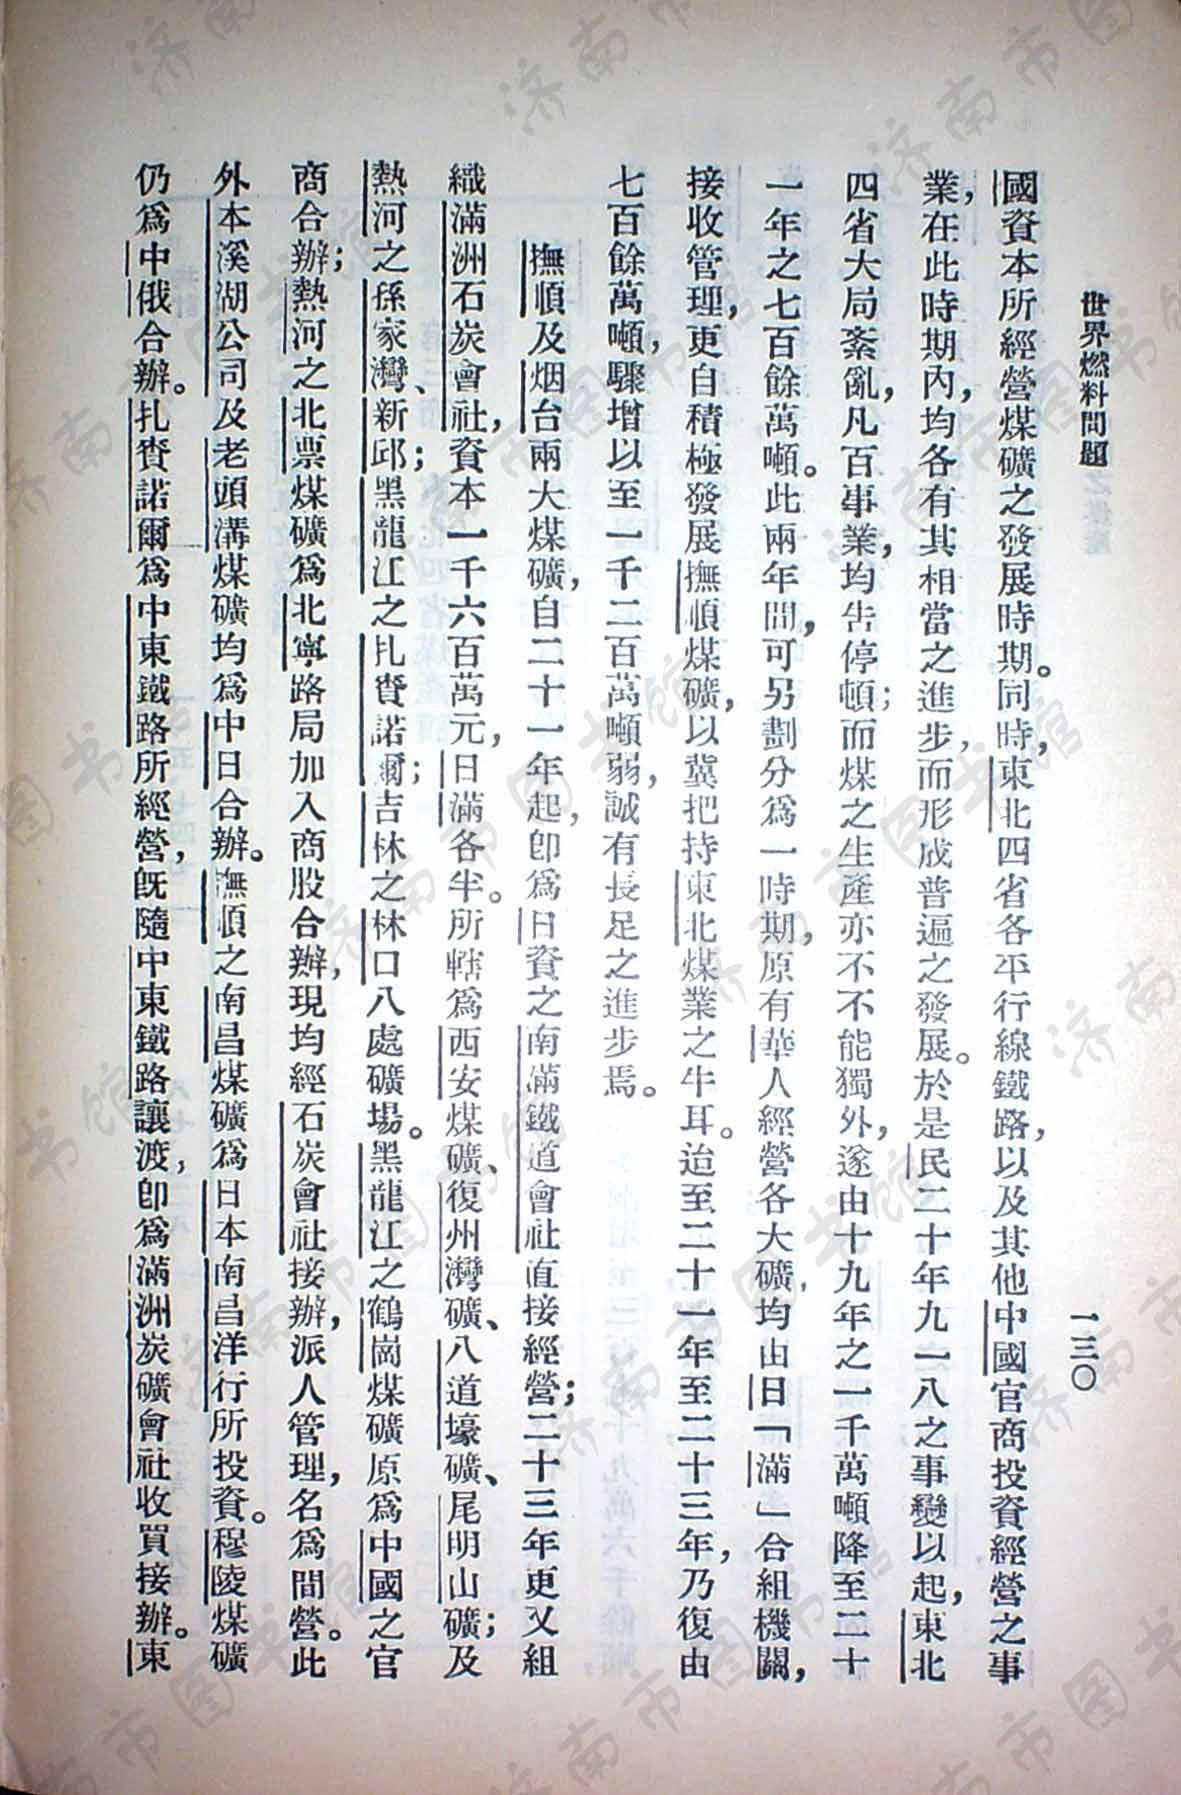 世界燃料問題
一三〇
國資本所經營煤礦之發展時期。同時，東北四省各平行線鐵路，以及其他中國官商投資經營之事
業，在此時期內，均各有其相當之進步，而形成普遍之發展。於是民二十年九一八之事變以起，東北
四省大局紊亂，凡百事業，均告停頓；而煤之生產亦不不能獨外，遂由十九年之一千萬噸降至二十
一年之七百餘萬噸。此兩年間，可另劃分爲一時期，原有華人經營各大礦，均由日「滿」合組機關，
接收管理，更自積極發展撫順煤礦，以冀把持東北煤業之牛耳。迨至二十一年至二十三年，乃復由
七百餘萬噸，驟增以至一千二百萬噸弱，誠有長足之進步焉。
撫順及烟台兩大煤礦，自二十一年起，卽爲日資之南滿鐵道會社直接經營；二十三年更又組
織滿洲石炭會社，資本一千六百萬元，日滿各半。所轄爲西安煤礦、復州灣礦、八道壕礦、尾明山礦；及
熱河之孫家灣、新邱；黑龍江之扎賚諾爾；吉林之林口八處礦場。黑龍江之鶴崗煤礦原爲中國之官
商合辦；熱河之北票煤礦爲北寧路局加入商股合辦，現均經石炭會社接辦，派人管理，名爲間營。此
外本溪湖公司及老頭溝煤礦均爲中日合辦。撫順之南昌煤礦爲日本南昌洋行所投資。穆陵煤礦
仍爲中俄合辦。扎賚諾爾爲中東鐵路所經營，旣隨中東鐵路讓渡，卽爲滿洲炭礦會社收買接辦。東
济南市图书馆